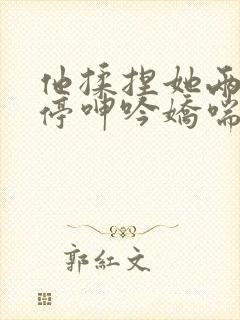 他揉捏她两
停呻吟娇喘
郭紅文